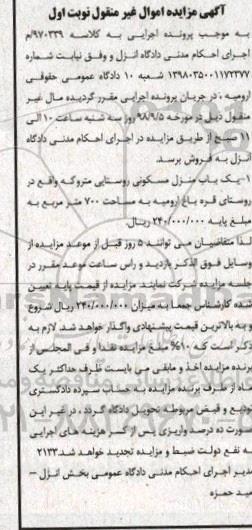 آگهی مزایده اموال غیر منقول نوبت اول
به موجب پرونده اجرایی به کلاسه ۹۷۰۳۳۹/م
اجرای احکام مدنی دادگاه انزل و وفق نیابت شماره
۱۳۹۸۰۳۵۰۰۱۱۷۲۳۷۷ شعبه ۱۰ دادگاه عمومی حقوقی
ارومیه ، در جریان پرونده اجرایی مقرر گردیده مال غیر
منقول ذیل در مورخه ۹۸/۹/۵ روز سه شنبه ساعت ۱۰ الی
صبح از طریق مزایده در اجرای احکام مدنی دادگاه
انزل به فروش برسد.
۱-یک باب منزل مسکونی روستایی متروکه واقع در
روستای قره باغ ارومیه به مساحت ۷۰۰ متر مربع به
مبلغ پایه ۲۴۰/۰۰۰/۰۰۰ ریال.
لذا متقاضیان می توانند ۵ روز قبل از موعد مزایده از
وسایل فوق الذکر بازدید و راس ساعت موعد مقرر در
جلسه مزایده شرکت نمایند. مزایده از قیمت پایه تعیین
شده کارشناس جمعا به میزان ۲۴۰/۰۰۰/۰۰۰ ریال شروع
و به بالاترین قیمت پیشنهادی واگذار خواهد شد. لازم به
ذکر است که ۱۰% مبلغ مزایده نقدا و فی المجلس از
برنده مزایده اخذ و مابقی می بایست ظرف حداکثر یک
ماه از طرف برنده مزایده به حساب سپرده دادگستری
تودیع و قبض مربوطه تحویل دادگاه گردد ، در غیر این
صورت ده درصد واریزی پس از کسر هزینه های اجرایی
به نفع دولت ضبط و مزایده تجدید خواهد شد.۲۱۳۳
مدیر اجرای احکام مدنی دادگاه عمومی بخش انزل –
حمزه